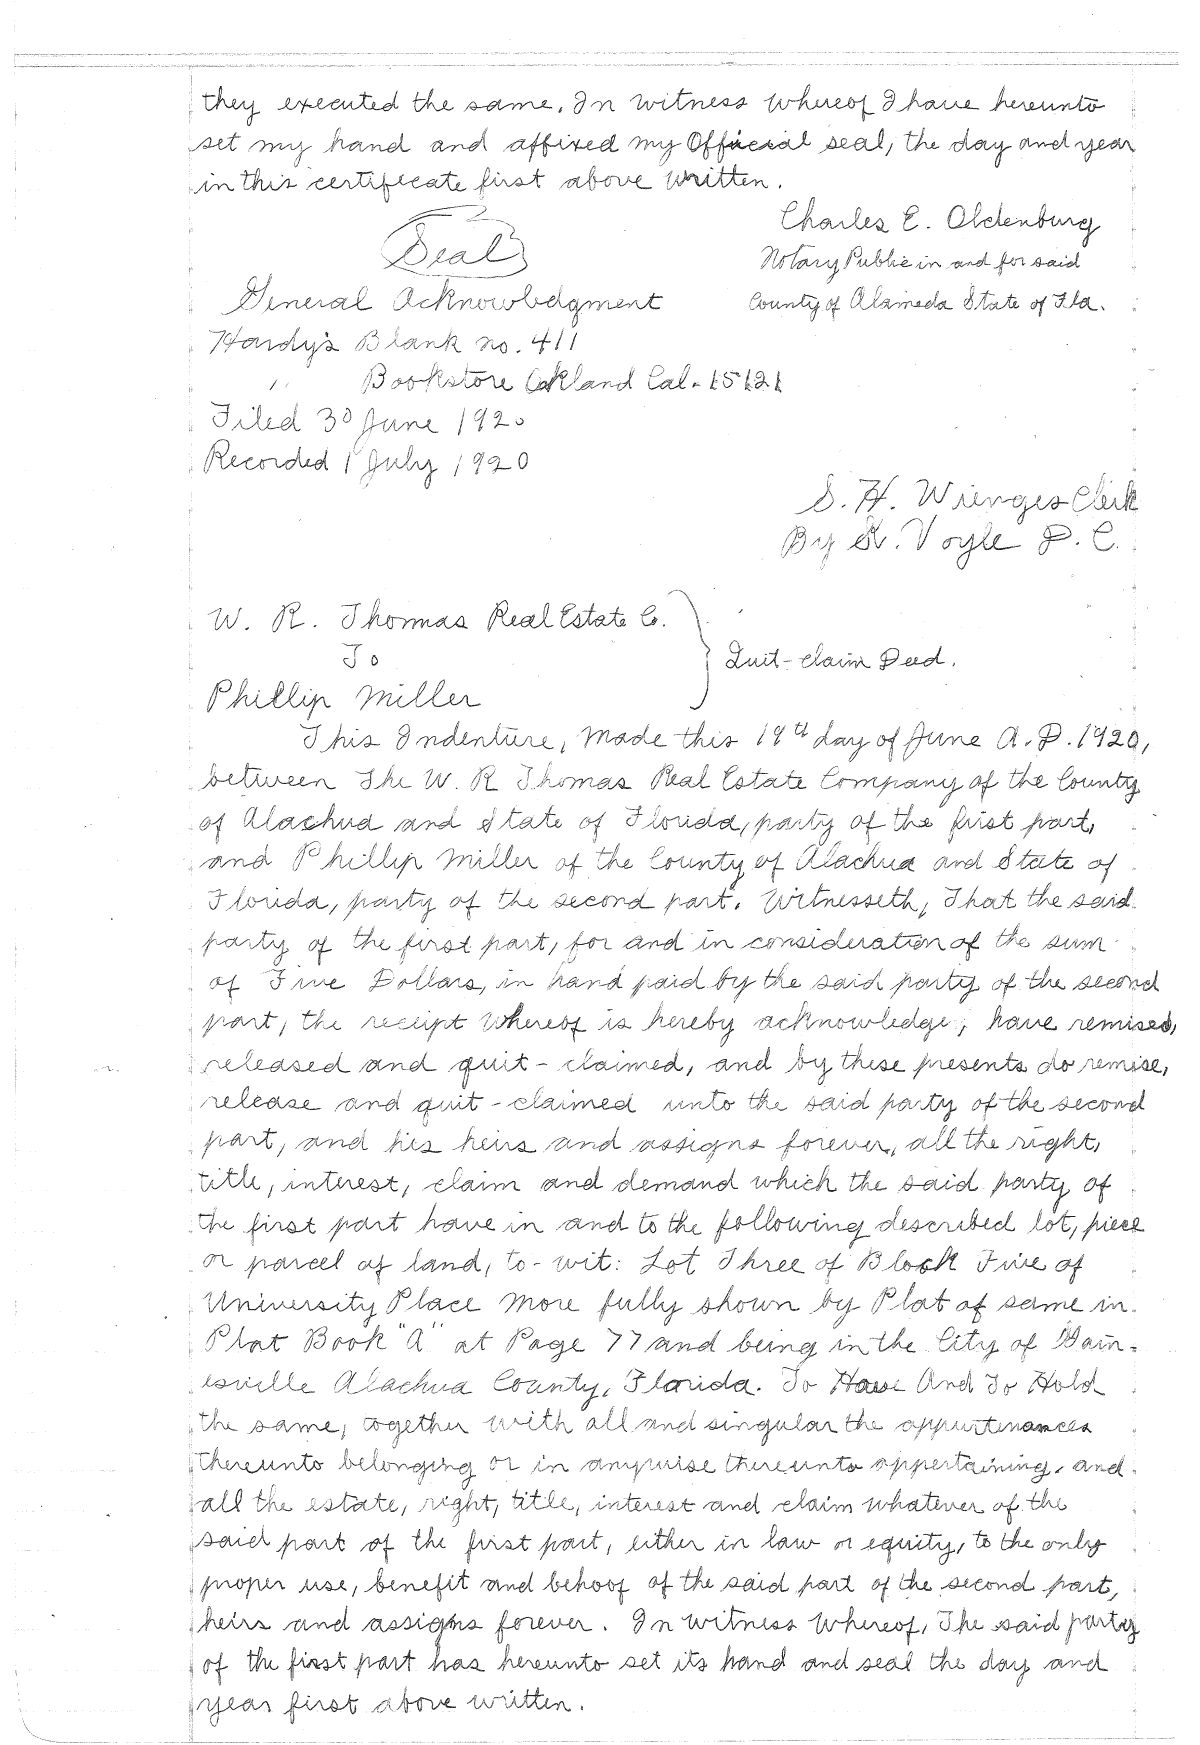 they executed the same. In witness whereof I have hereunto
set my hand and affixed my Official seal, the day and year
in this certificate first above written.
Charles E. Oldenburg
Seal
Notary Public in and for said
General Acknowledgment
County of Alameda State of Fla.
Hardy's Blank no. 411
" Bookstore Oakland Cal. 15121
Filed 30 June 1920
Recorded 1 July 1920
S. H. Wienges Clerk
By K. Voyle D. C.
W. R. Thomas Real Estate Co.
To
Quit-claim Deed.
Phillip Miller
This Indenture, Made this 19th day of June A.D. 1920,
between The W. R Thomas Real Estate Company of the County
of Alachua and State of Florida, party of the first part,
and Phillip Miller of the County of Alachua and State of
Florida, party of the second part. Witnesseth, That the said
party of the first part, for and in consideration of the sum
of Five Dollars, in hand paid by the said party of the second
part, the receipt whereof is hereby acknowledge, have remised,
released and quit-claimed, and by these presents do remise,
release and quit-claimed unto the said party of the second
part, and his heirs and assigns forever, all the right,
title, interest, claim and demand which the said party of
the first part have in and to the following described lot, piece
or parcel of land, to-wit: Lot Three of Block Five of
University Place More fully shown by Plat of same in
Plat Book "A" at Page 77 and being in the City of Gain-
esville Alachua County, Florida. To Have And To Hold
the same, together with all and singular the appurtenances
thereunto belonging or in anywise thereunto appertaining, and
all the estate, right, title, interest and claim whatever of the
said part of the first part, either in law or equity, to the only
proper use, benefit and behoof of the said part of the second part,
heirs and assigns forever. In witness whereof, The said party
of the first part has hereunto set its hand and seal the day and
year first above written.